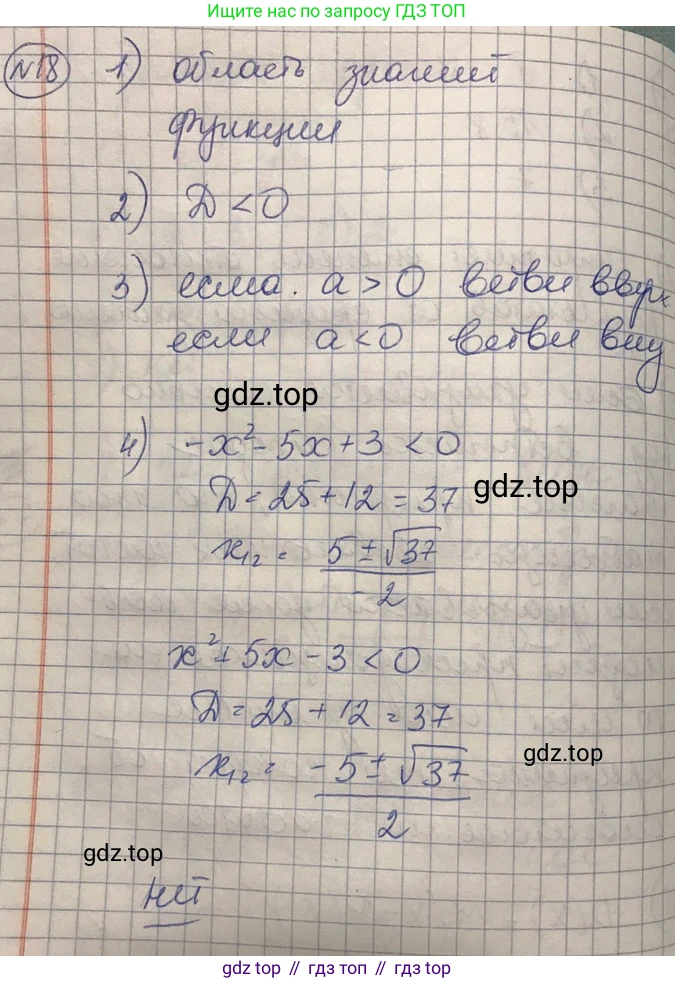 Ищите нас по запросу ГДЗ ТОП
№18 1) область значений
функции
2) Д < 0
3) если. a > 0 ветви вверх
если a < 0 ветви вниз
gdz.top
4) -x² - 5x + 3 < 0
Д = 25 + 12 = 37
gdz.top
x₁₂ = (5 ± √37)/(-2)
x² + 5x - 3 < 0
Д = 25 + 12 = 37
gdz.top
x₁₂ = (-5 ± √37)/2
gdz.top
нет
gdz top // гдз топ // gdz.top